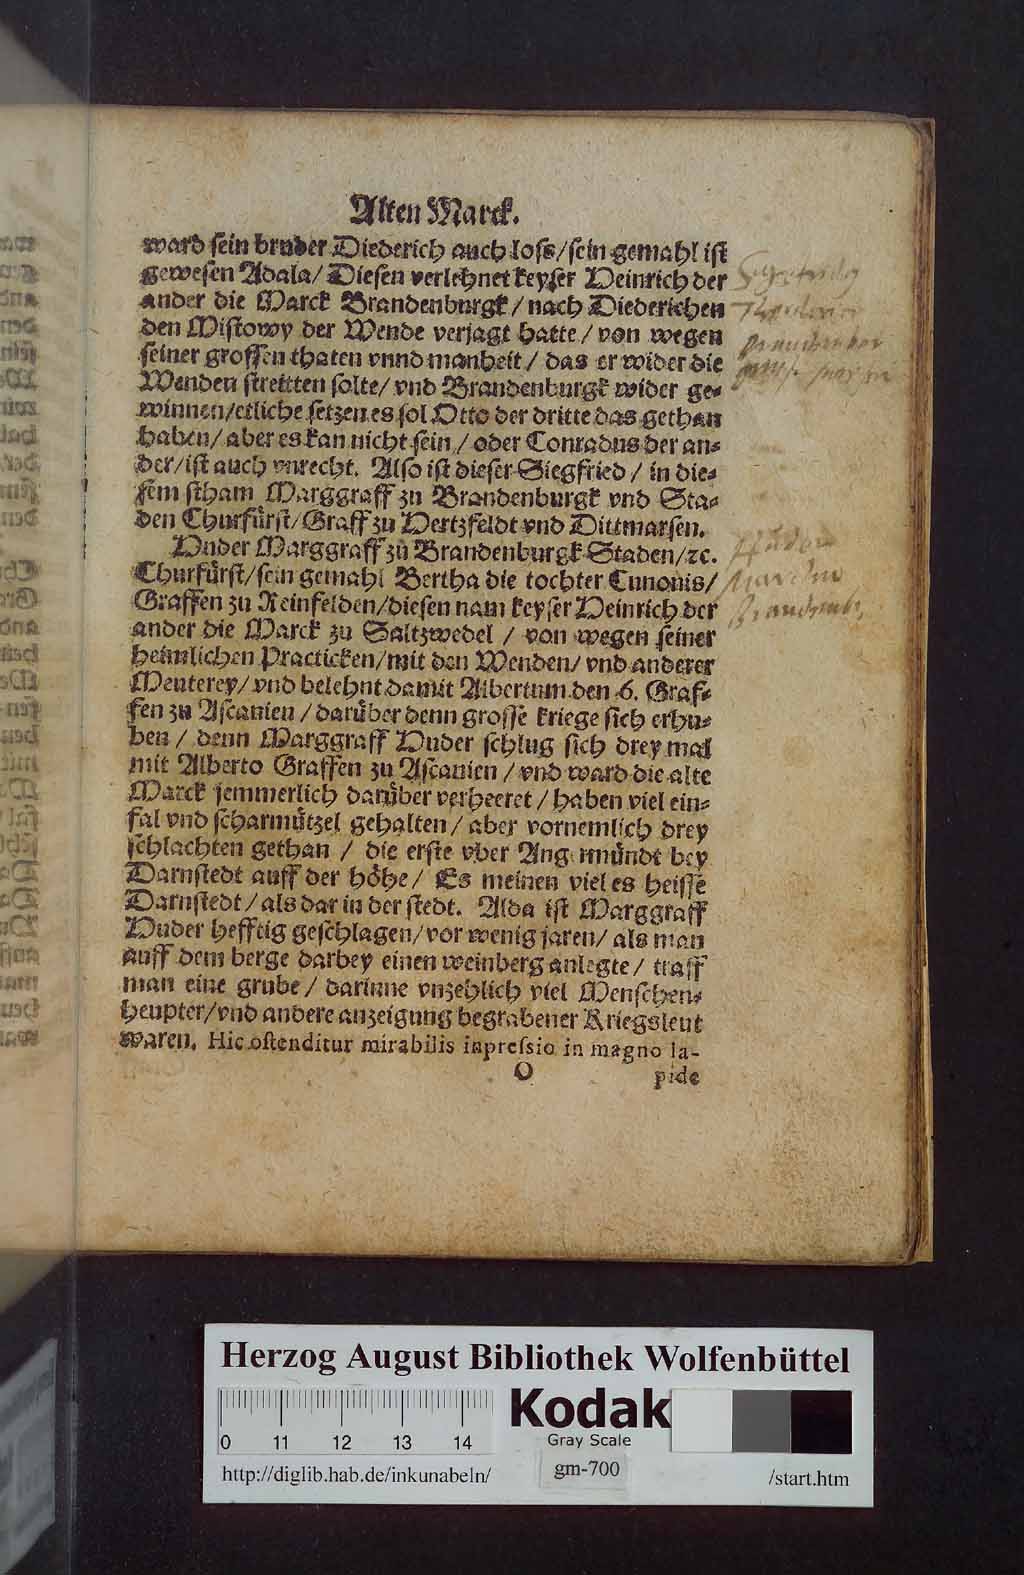 Alten Marck.
ward sein bruder Diederich auch loss/sein gemahl ist
gewesen Adala/ Diesen verlehnet keyser Heinrich der
ander die Marck Brandenburgk/ nach Diederichen
den Mistowy der Wende verjagt hatte/ von wegen
seiner grossen thaten vnnd manheit/ das er wider die
Wenden streitten solte/ vnd Brandenburgk wider ge-
winnen/etliche setzen es sol Otto der dritte das gethan
haben/ aber es kan nicht sein/ oder Conradus der an-
der/ist auch vnrecht. Also ist dieser Siegfried/ in die-
sem stham Marggraff zu Brandenburgk vnd Sta-
den Churfürst/Graff zu Hertzfeldt vnd Dittmarsen.
Huder Marggraff zu Brandenburgk Staden/ꝛc.
Churfürst/sein gemahl Bertha die tochter Cunonis/
Graffen zu Reinfelden/diesen nam keyser Heinrich der
ander die Marck zu Saltzwedel/ von wegen seiner
heimlichen Practicken/mit den Wenden/ vnd anderer
Meuterey/ vnd belehnt damit Albertum den 6. Graf-
fen zu Ascanien/ darüber denn grosse kriege sich erhu-
ben/ denn Marggraff Huder schlug sich drey mal
mit Alberto Graffen zu Ascanien/ vnd ward die alte
Marck jemmerlich darüber verheeret/ haben viel ein-
fal vnd scharmützel gehalten/ aber vornemlich drey
schlachten gethan/ die erste vber Angermündt bey
Darnstedt auff der höhe/ Es meinen viel es heisse
Darnstedt/ als dar in der stedt. Alda ist Marggraff
Huder hefftig geschlagen/ vor wenig jaren/ als man
auff dem berge darbey einen weinberg anlegte/ traff
man eine grube/ darinne vnzehlich viel Menschen-
heupter/vnd andere anzeigung begrabener Kriegsleut
waren. Hic ostenditur mirabilis inpressio in magno la-
O
pide
Herzog August Bibliothek Wolfenbüttel
0 11 12 13 14
Kodak
Gray Scale
http://diglib.hab.de/inkunabeln/
gm-700
/start.htm